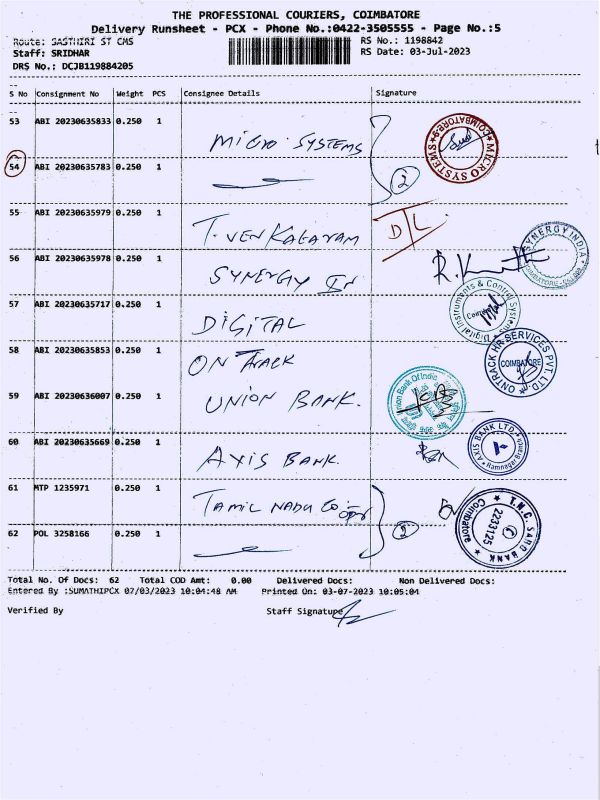 THE PROFESSIONAL COURIERS, COIMBATORE
Delivery Runsheet - PCX - Phone No.:0422-3505555 - Page No.:5
Route: SASTHIRI ST CMS RS No.: 1198842
Staff: SRIDHAR RS Date: 03-Jul-2023
DRS No.: DCJB119884205
S No Consignment No Weight PCS Consignee Details Signature
53 ABI 20230635833 0.250 1 MICRO SYSTEMS
MICRO SYSTEMS COIMBATORE-9
54 ABI 20230635783 0.250 1 2
55 ABI 20230635979 0.250 1 T. VENKATARAM D/L
56 ABI 20230635978 0.250 1 SYNERGY In
SYNERGY INDIA COIMBATORE
57 ABI 20230635717 0.250 1 DIGITAL
Digital Instruments & Control Systems
58 ABI 20230635853 0.250 1 ON TRACK
ONTRACK HR SERVICES PVT. LTD. COIMBATORE
59 ABI 20230636007 0.250 1 UNION BANK.
Union Bank Of India
60 ABI 20230635669 0.250 1 AXIS BANK.
AXIS BANK LTD. Ramnagar Branch
61 MTP 1235971 0.250 1 TAMIL NADU CO op
T.N.C. SARD BANK Coimbatore 2233125
62 POL 3258166 0.250 1 2
Total No. Of Docs: 62 Total COD Amt: 0.00 Delivered Docs: Non Delivered Docs:
Entered By :SUMATHIPCX 07/03/2023 10:04:48 AM Printed On: 03-07-2023 10:05:04
Verified By Staff Signature